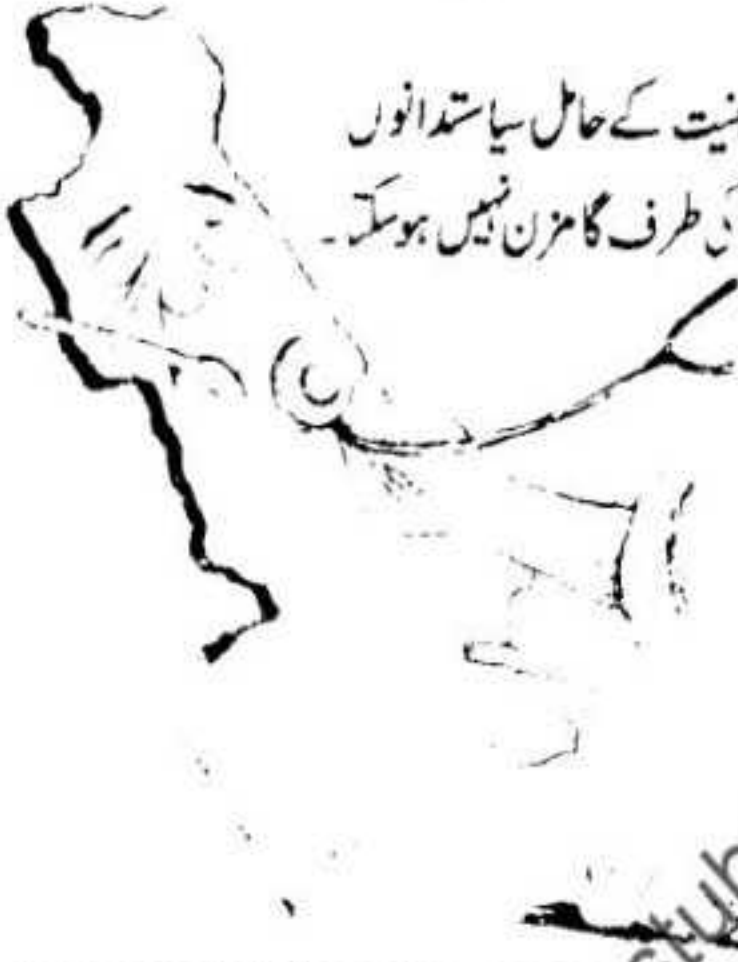 کے حامل سیاستدانوں
کی طرف گامزن نہیں ہوسکتا۔